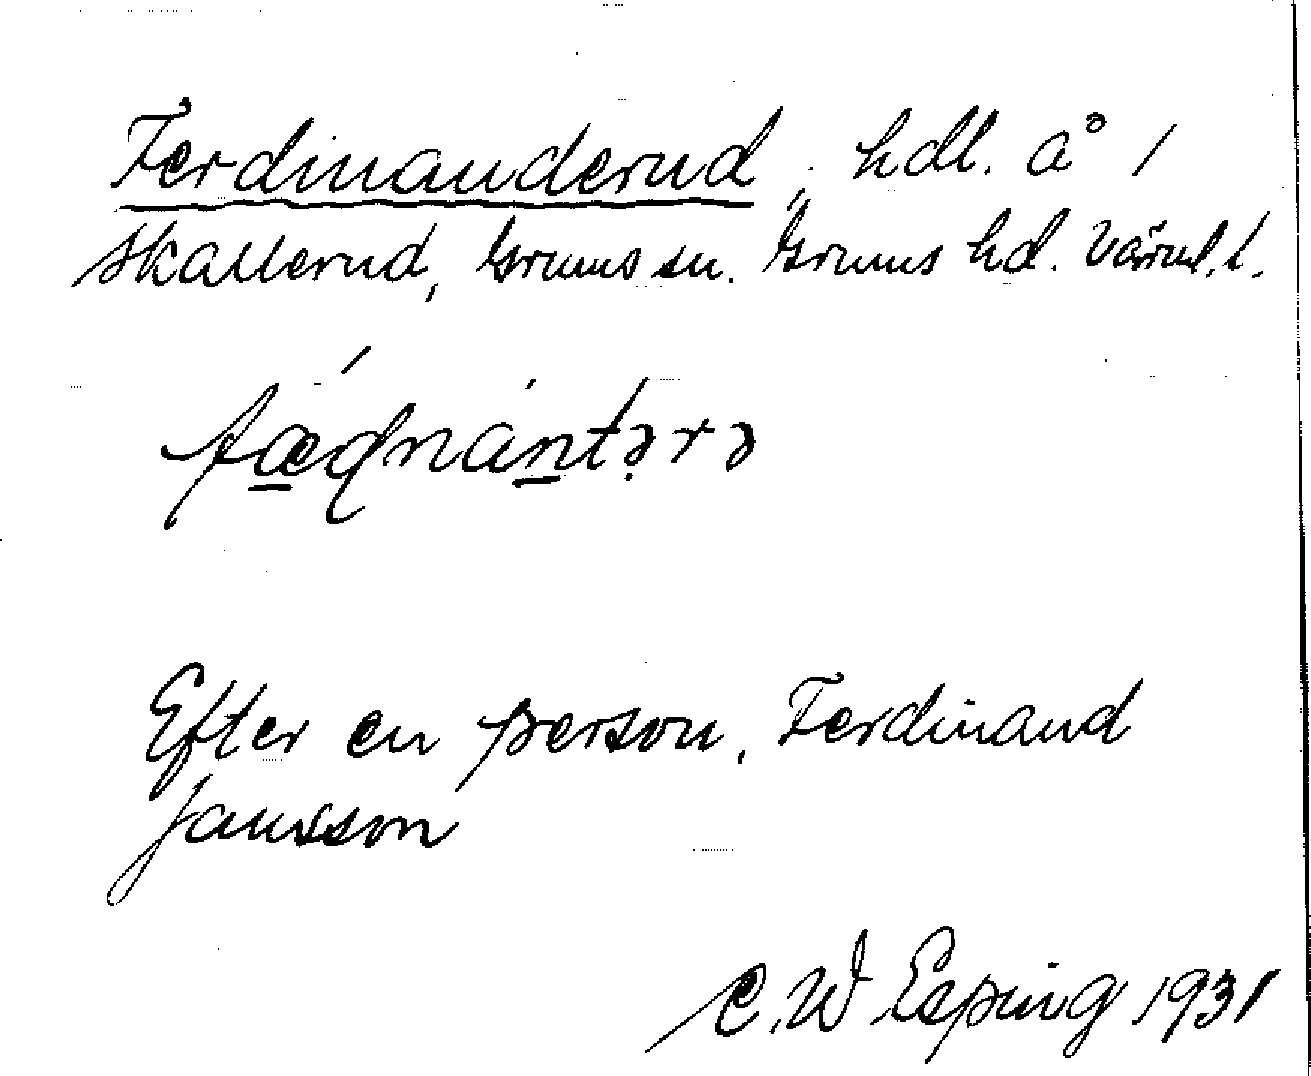 Ferdinanderud, hdl. å 1
Skallerud, Grums sn. Grums hd. Värml. l.
Efter en person, Ferdinand
Jansson
C. W Esping 1931